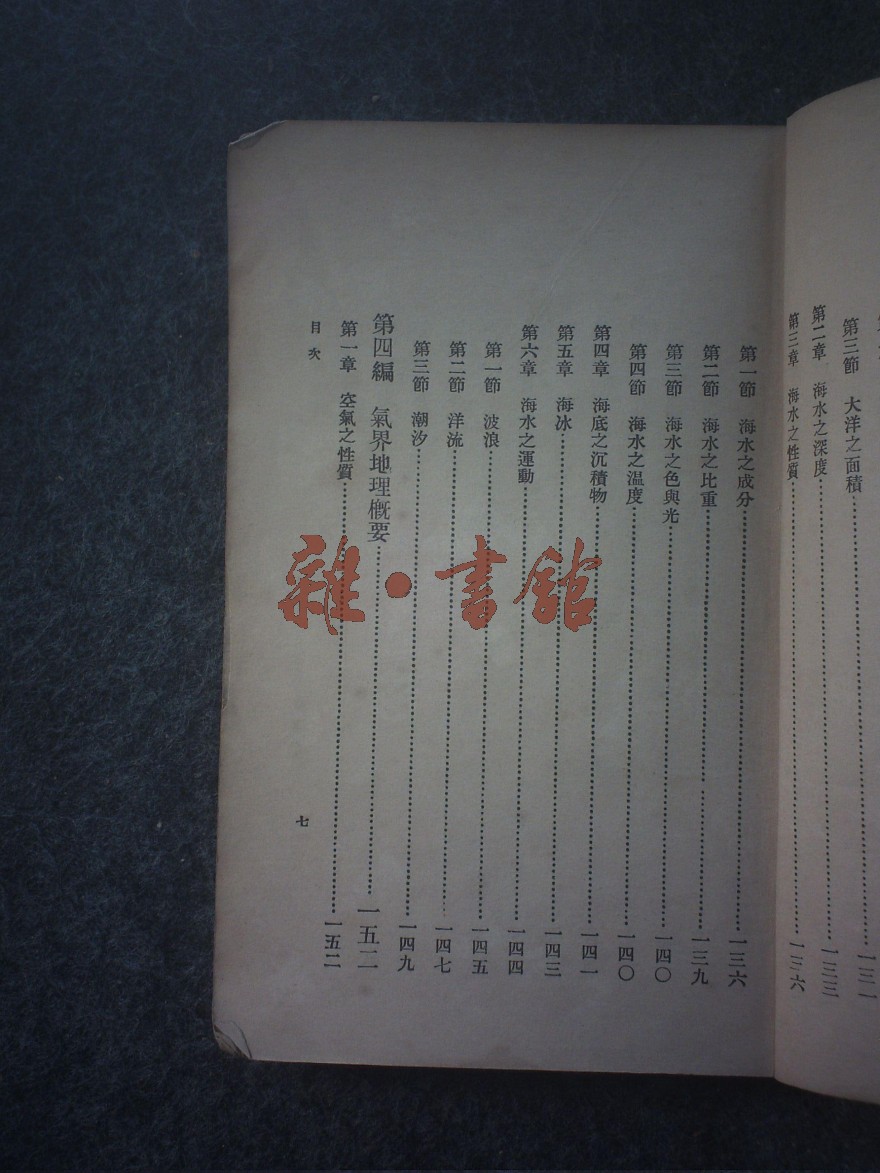 第三節 大洋之面積……一三一
第二章 海水之深度……一三三
第三章 海水之性質……一三六
第一節 海水之成分……一三六
第二節 海水之比重……一三九
第三節 海水之色與光……一四〇
第四節 海水之温度……一四〇
第四章 海底之沉積物……一四一
第五章 海冰……一四三
第六章 海水之運動……一四四
第一節 波浪……一四五
第二節 洋流……一四七
第三節 潮汐……一四九
第四編 氣界地理概要……一五二
第一章 空氣之性質……一五二
目次
七
雜·書館